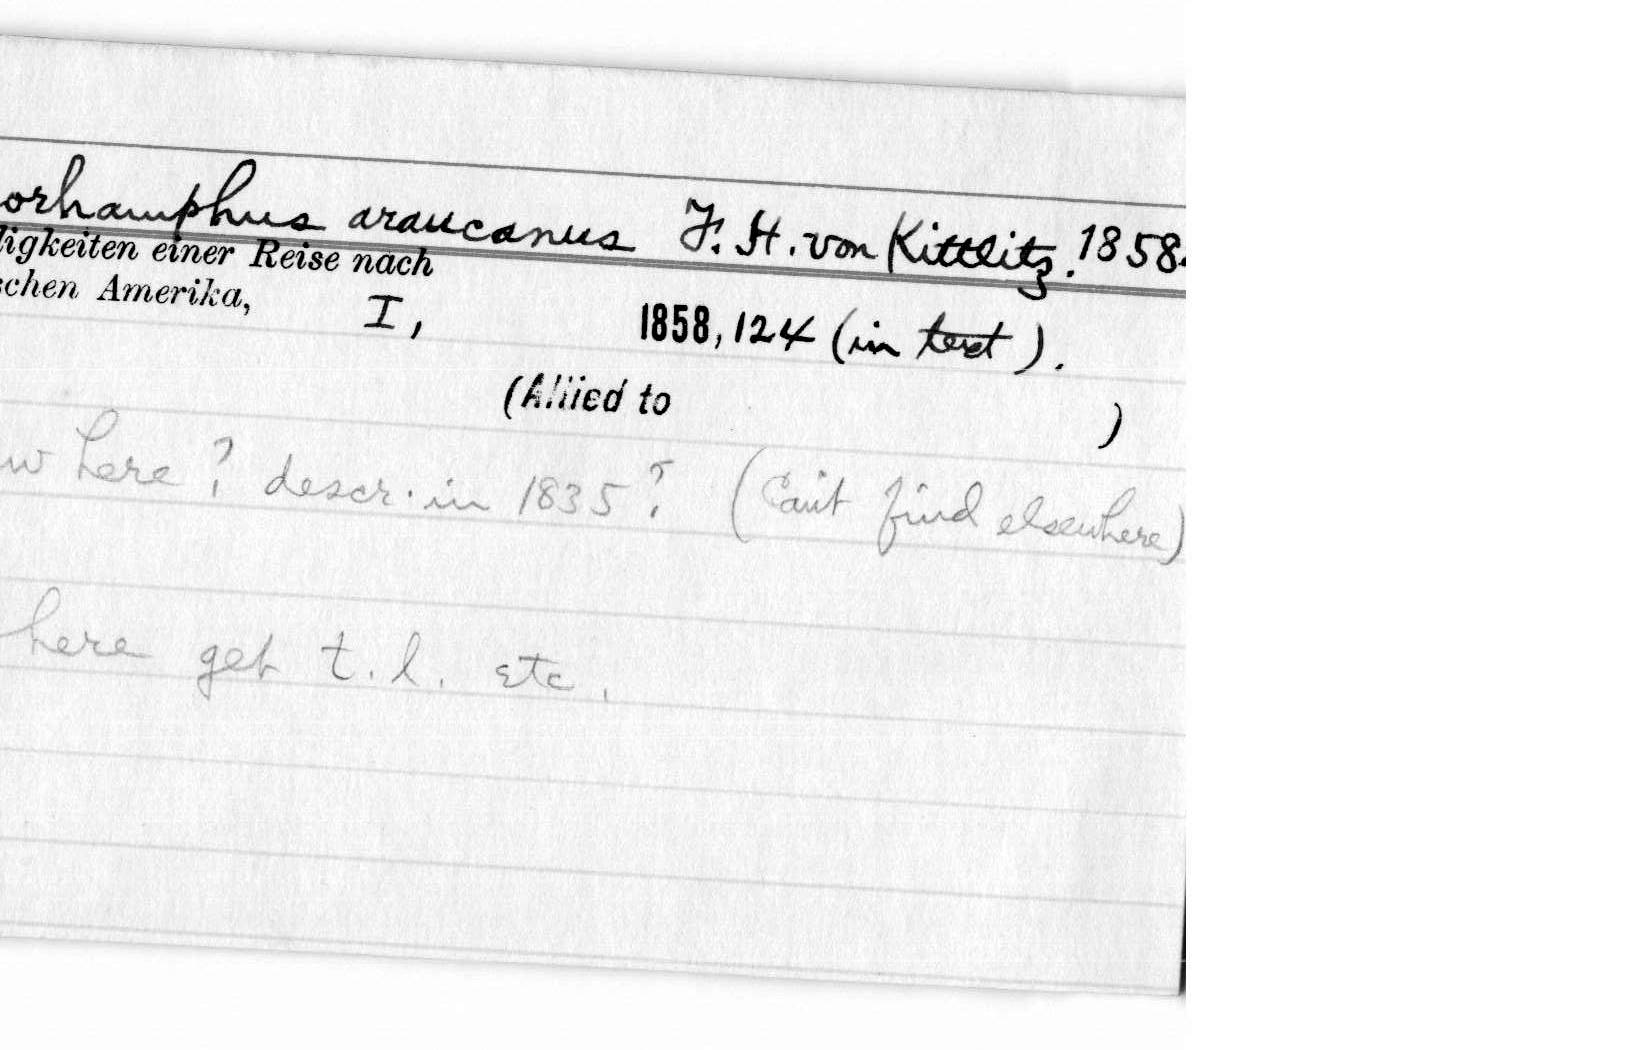 orhamphus araucanus F. H. von Kittlitz. 1858.
ligkeiten einer Reise nach
schen Amerika, I, 1858, 124 (in text).
(Allied to )
w here? descr. in 1835? (Can't find elsewhere)
here get t.l. etc.